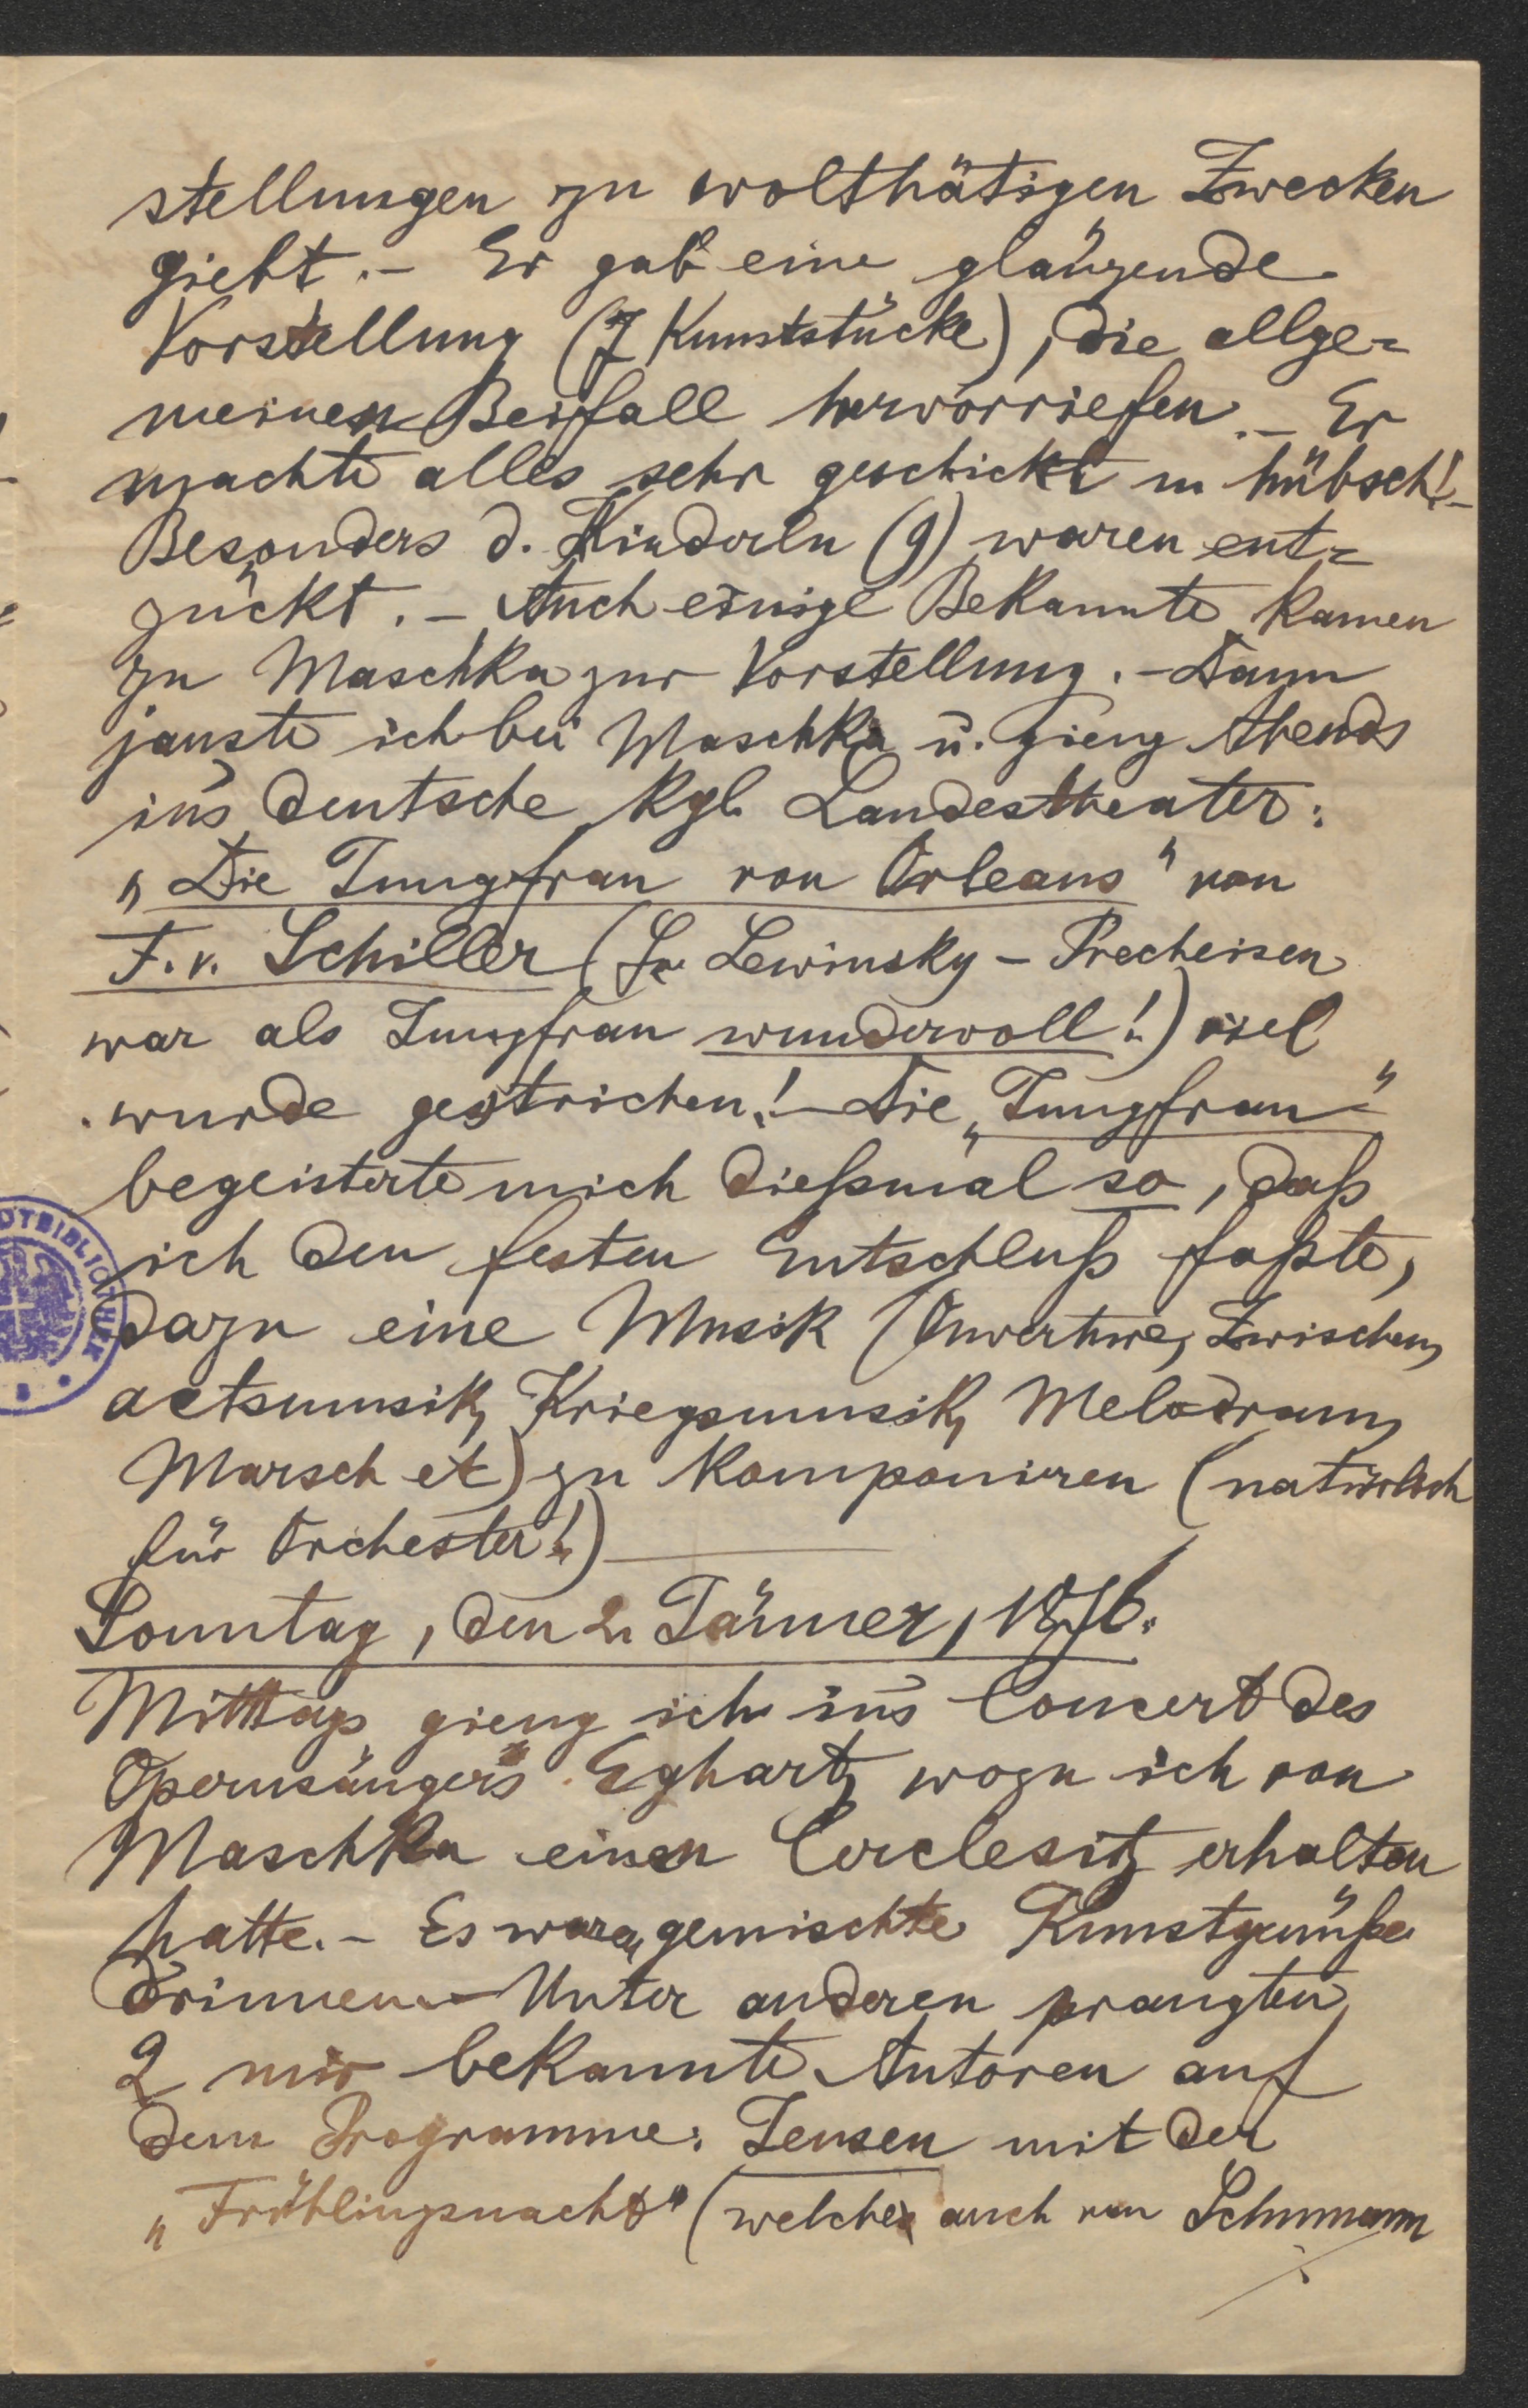 stellungen zu wolthätigen Zwecken
giebt. – Er gab eine glänzende
Vorstellung (7 Kunststücke), die allge=
meinen Beifall hervorriefen. – Er
machte alles sehr geschickt u hübsch! –
Besonders d. Kinderln (9) waren ent=
zückt. – Auch einige Bekannte kamen
zu Maschka zur Vorstellung. – Dann
jauste ich bei Maschka u. gieng Abends
in's deutsche kgl. Landestheater:
„Die Jungfrau von Orleans" von
F. v. Schiller (Fr. Lewinsky – Precheisen
war als Jungfrau wundervoll!) viel
wurde gestrichen! – Die „Jungfrau"
begeisterte mich dießmal so, daß
ich den festen Entschluß faßte,
dazu eine Musik (Ouverture, Zwischen
actsmusik, Kriegsmusik, Melodram,
Marsch etc) zu komponiren (natürlich
für Orchester!)
Sonntag, den 2. Jänner, 1876.
Mittags gieng ich in's Concert des
Opernsängers Eghart, wozu ich von
Maschka einen Cerclesitz erhalten
hatte. – Es waren gemischte Kunstgenüße
drinnen. – Unter anderen prangten
2 mir bekannte Autoren auf
dem Programme: Jensen mit der
„Frühlingsnacht" (welche auch von Schumann